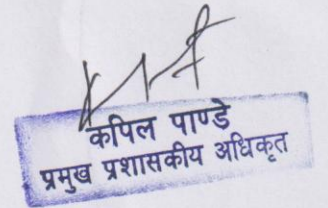 कपिल पाण्डे
प्रमुख प्रशासकीय अधिकृत